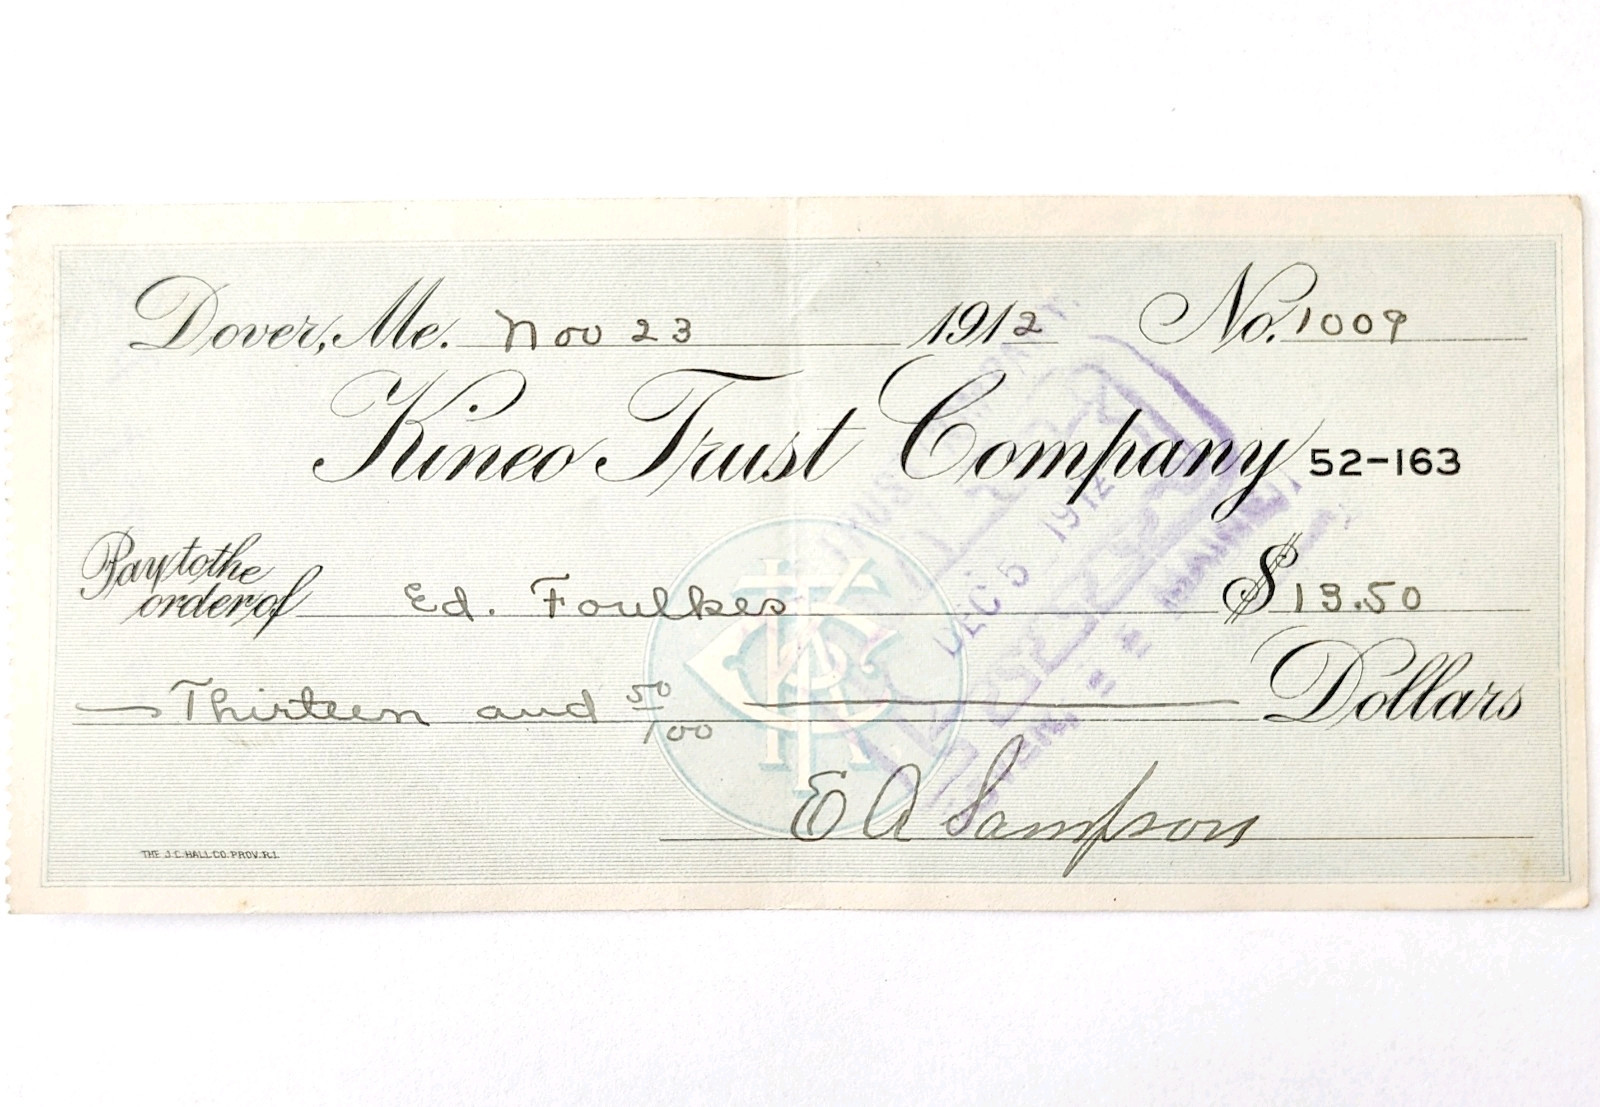 Dover, Me. Nov 23 1912 No. 1009
Kineo Trust Company 52-163
Pay to the
order of Ed. Foulkes $13.50
Thirteen and 50/100 Dollars
E A Sampson
THE J.C. HALL CO. PROV. R.I.
DEC 5 1912